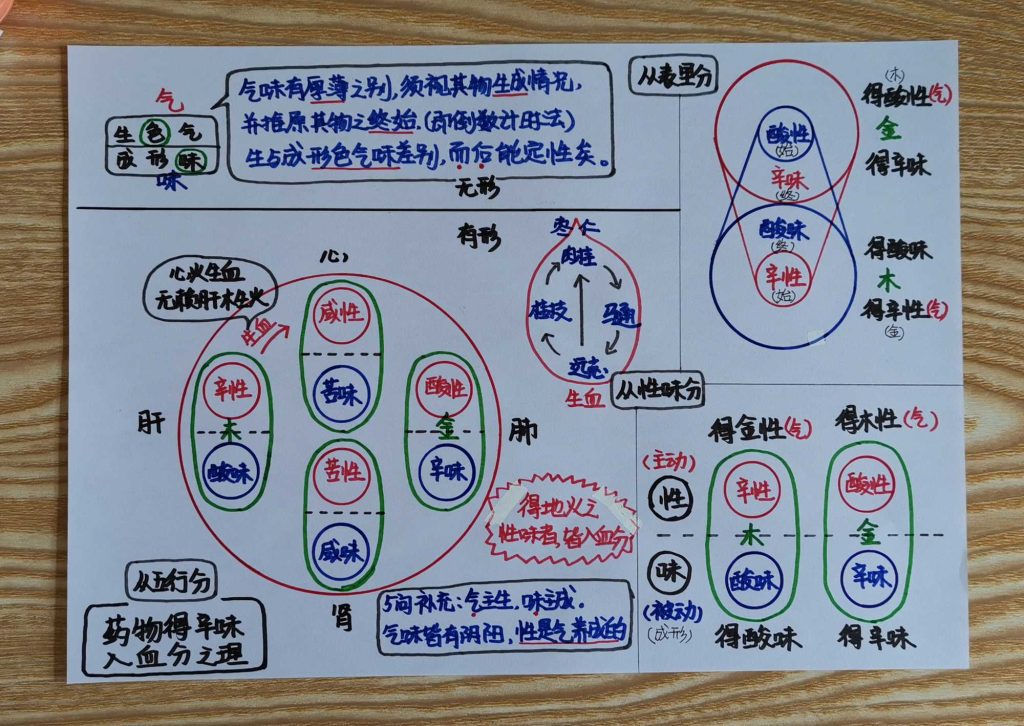 气
生 色 气
成 形 味
味
气味有厚薄之别,须视其物生成情况,
并推原其物之终始.(即倒数计时法)
生与成·形色气味差别,而后能定性矣。
无形
有形
心
心火生血
无赖肝木生火
生血
咸性
苦味
肝
辛性
木
酸味
酸性
金
辛味
肺
苦性
咸味
肾
枣仁
肉桂
桂枝
马通
远志
生血
得地火之
性味者,皆入血分
从五行分
药物得辛味
入血分之理
5问补充:气主生,味主成。
气味皆有阴阳,性是气养成的
从表里分
酸性
(始)
辛味
(终)
酸味
(终)
辛性
(始)
(木)
得酸性(气)
金
得辛味
得酸味
木
得辛性(气)
(金)
从性味分
得金性(气)
得木性(气)
(主动)
性
味
(被动)
(成形)
辛性
木
酸味
酸性
金
辛味
得酸味
得辛味